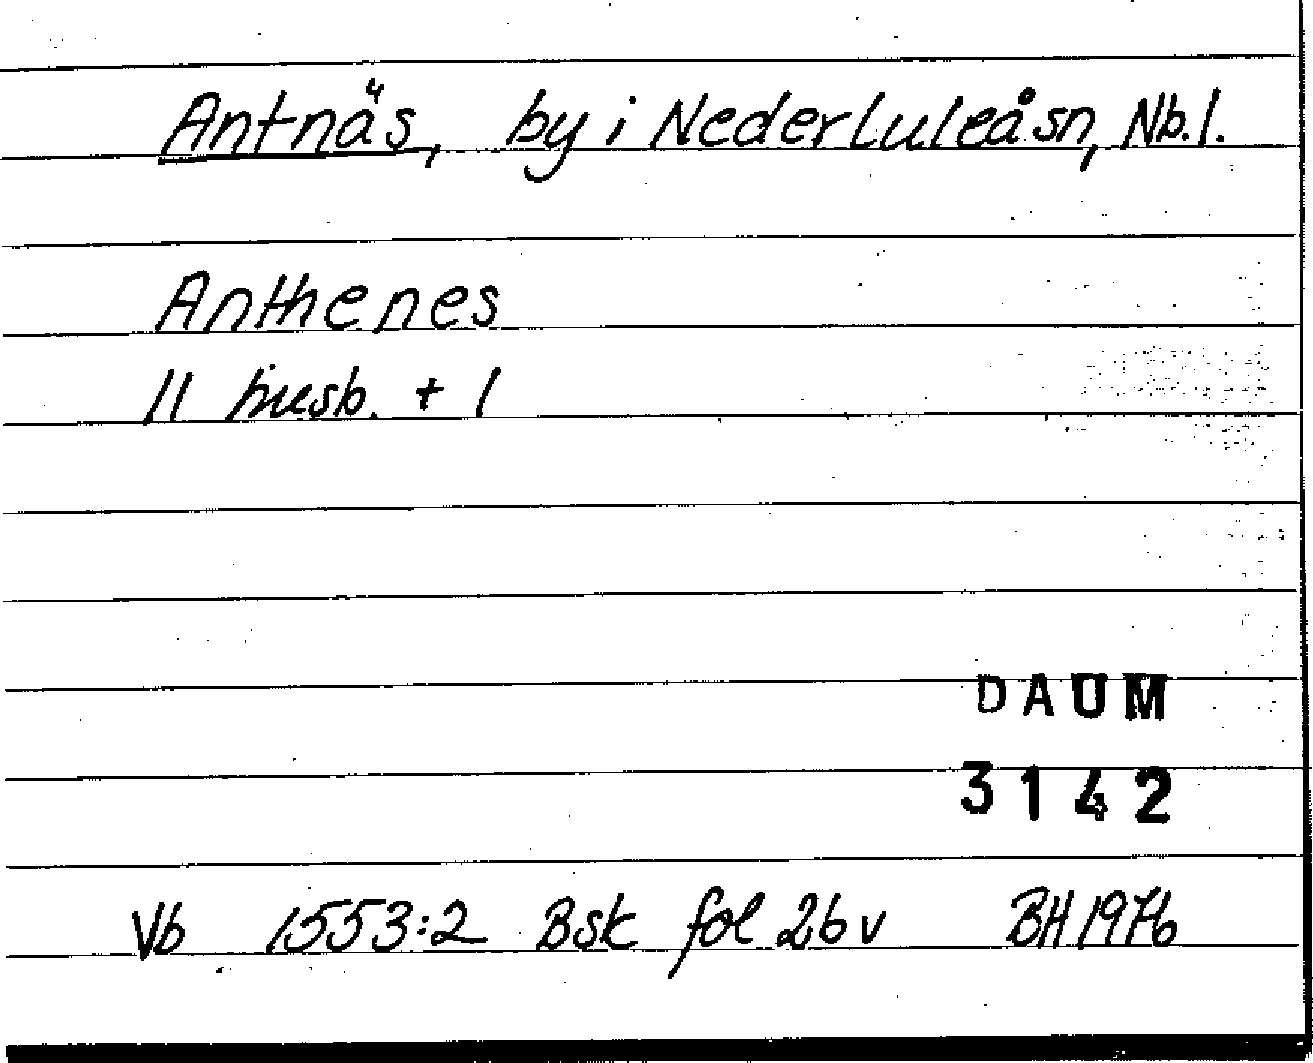 Antnäs, by i Nederluleåsn, Nb.l.
Anthenes
11 husb. + 1
DAUM
3142
Vb 1553:2 Bsk fol 26v BH 1976